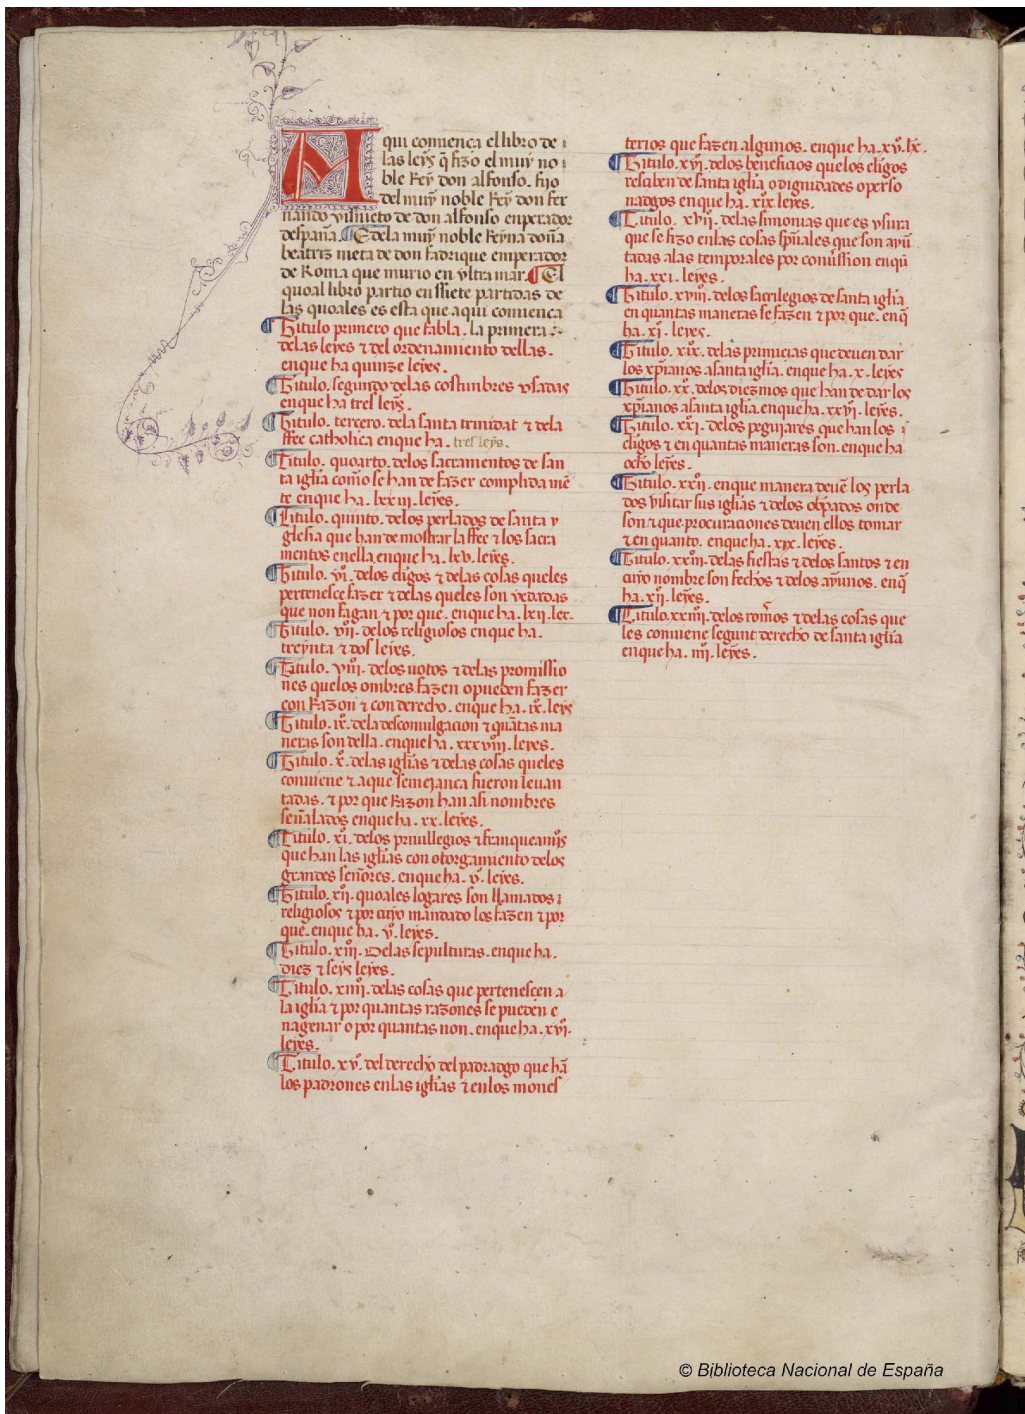 Aqui comiença el libro de
las leys q̃ fizo el muy no
ble Rey don alfonso. fijo
del muy noble Rey don fer
nando visnieto de don alfonso enperador
despaña. ¶ E dela muy noble Reyna doña
beatriz nieta de don fadrique emperador
de Roma que murio en vltra mar. ¶ El
quoal libro partio en ssiete partidas de
las quoales es esta que aqui comiença
¶ Titulo primero que fabla. la primera
delas leyes ⁊ del ordenamiento dellas.
enque ha quinze leyes.
¶ Titulo. segundo delas costumbres vsadas
enque ha tres leys.
¶ Titulo. tercero. dela santa trinidat ⁊ dela
ffee catholica enque ha. tres leys.
¶ Titulo. quoarto. delos sacramentos de san
ta iglia como se han de fazer complida mẽ
te enque ha. lxxiii. leyes.
¶ Titulo. quinto. delos perlados de santa y
glesia que han de mostrar la ffee ⁊ los sacra
mentos enella. enque ha. lxv. leyes.
¶ Titulo. vi. delos cligos ⁊ delas cosas queles
pertenesce fazer ⁊ delas queles son vedadas
que non fagan ⁊ por que. enque ha. lxii. lee.
¶ Titulo. vii. delos religiosos enque ha.
treynta ⁊ dos leyes.
¶ Titulo. viii. delos uotos ⁊ delas promissio
nes quelos ombres fazen o pueden fazer
con Razon ⁊ con derecho. enque ha. ix. leys
¶ Titulo. ix. dela descomulgacion ⁊ quãtas ma
neras son della. enque ha. xxxviii. leyes.
¶ Titulo. x. delas iglias ⁊ delas cosas queles
conuiene ⁊ aque semejanca fueron leuan
tadas. ⁊ por que Razon han asi nombres
señalados enque ha. xx. leyes.
¶ Titulo. xi. delos priuillegios ⁊ franqueamĩs
que han las iglias con otorgamiento delos
grandes señores. enque ha. v. leyes.
¶ Titulo. xii. quoales logares son llamados
religiosos ⁊ por cuyo mandado los fazen ⁊ por
que. enque ha. v. leyes.
¶ Titulo. xiii. Delas sepulturas. enque ha.
diez ⁊ seys leyes.
¶ Titulo. xiiii. delas cosas que pertenescen a
la iglia ⁊ por quantas razones se pueden e
nagenar o por quantas non. enque ha. xvi.
leyes.
¶ Titulo. xv. del derecho del padradgo que hã
los padrones enlas iglias ⁊ enlos mones
terios que fazen algunos. enque ha. xv. lx.
¶ Titulo. xvi. delos beneficios quelos cligos
resciben de santa iglia o dignidades o perso
nadgos enque ha. xix leyes.
¶ Titulo. xvii. delas simonias que es vsura
que se fizo enlas cosas spñiales que son ayũ
tadas alas temporales por comission enqũ
ha. xxi. leyes.
¶ Titulo. xviii. delos sacrilegios de santa iglia
en quantas maneras se fazen ⁊ por que. enq̃
ha. xi. leyes.
¶ Titulo. xix. delas primicias que deuen dar
los xp̃ianos a santa iglia. enque ha. x. leyes
¶ Titulo. xx. delos diezmos que han de dar los
xp̃ianos a santa iglia. enque ha. xxvi. leyes.
¶ Titulo. xxi. delos pegujares que han los
cligos ⁊ en quantas maneras son. enque ha
ocho leyes.
¶ Titulo. xxii. enque manera deuẽ los perla
dos visitar sus iglias ⁊ delos obp̃ados onde
son ⁊ que procuraciones deuen ellos tomar
⁊ en quanto. enque ha. xix. leyes.
¶ Titulo. xxiii. delas fiestas ⁊ delos santos ⁊ en
cuyo nombre son fechos ⁊ delos ayunos. enq̃
ha. xii. leyes.
¶ Titulo. xxiiii. delos rom̃os ⁊ delas cosas que
les conuiene segunt derecho de santa iglia
enque ha. iiii. leyes.
© Biblioteca Nacional de España